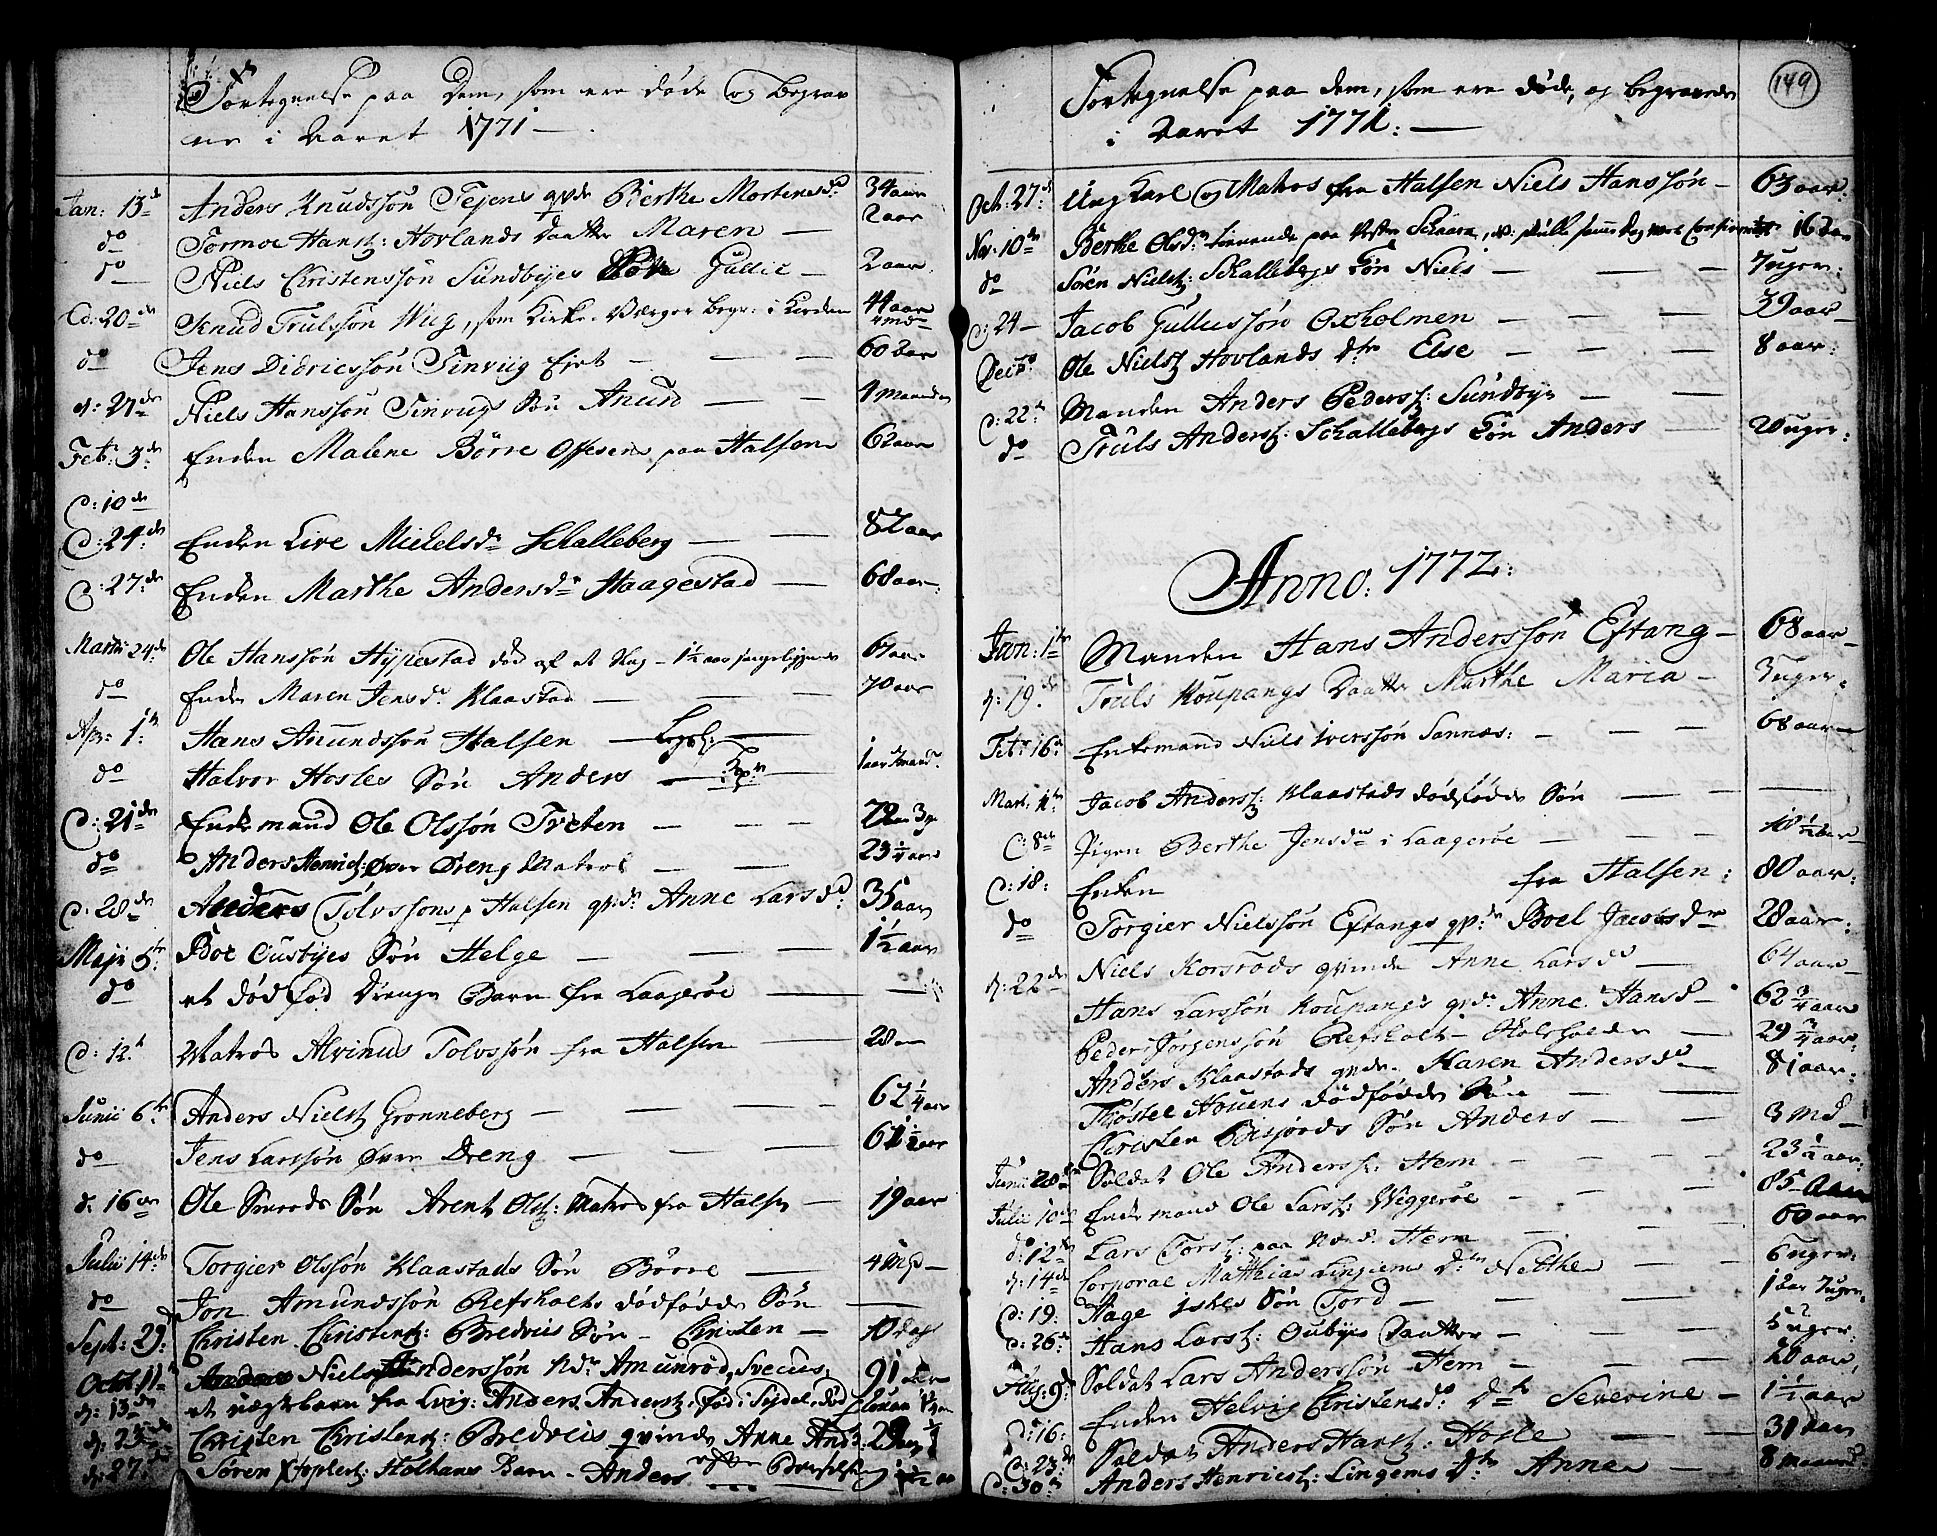 Fortegnelse paa Dem, som ere døde og begrav
ne i Aaret 1771
Jan: 13de Anders Knudssøn Tejens qvde Berthe Mortensdr 34 aar
do Tormoe Hansz: Hovlands Daatter Maren 2 aar
do Niels Christensøn Sundbyes Gullic 2 aar
d: 20de Knud Trulssøn Wiig, som Kirke-Værger begr: i Kirken 44 aar
do Jens Didricssøn Tinvüg 60 aar
d: 27de Niels Hanssøn Tinvugs Søn Anund 4 maaneder
Feb: 3de Enken Malene Børre Ossesen paa Halsen 62 aar
d: 10de
d: 24de Enken Live Mickelsdr Schalleberg 82 aar
d: 27de Enken Marthe Andersdr Haagestad 68 aar
Martii 24de Ole Hanssøn Hÿpestad død af et Slag 1½ aar sengeliggende
do Enken Maren Jensdr Klaastad 70 aar
Apr: 1te Hans Anundssøn Halsen
do Halvor Hosles Søn Anders 1 aar
d: 21de Enkemand Ole Olssøn Treten
do Anders Henricsz: Øvre Dreng Matros 23¼ aar
d: 28de Anders Tolvssøns Halsen qvd: Anne Larsdr 35 aar
Maji 5te Boe Oustbÿes Søn Helge 1½ aar
do et dødfød Drenge Barn fra Laagerøe
d: 12te Matros Alvinus Tolvssøn fra Halsen 28 aar
Junii 6te Anders Nielsz Grønneberg 62¼ aar
do Jens Larssøn Øvre Dreng 61½ aar
d: 16de Ole Søn Arent Olsz: Matros fra Halsen 19 aar
Julii 14de Torgier Olssøn Klaastads Søn Børre 4
do Jon Amundssøn Refsholts dødfødde Søn
Sept: 29de Christen Christensz: Bredviis Søn Christen 10 dage
Octob 11te Niels Anderssøn Amunrød, Svecus, 91 aar
d: 13de et ægte barn fra Anders Andersz, fød i Sejdel, død
d: 23de Christen Christensz: Bredviis qvinde Anne
d: 27de Søren Holhans Barn Anders
149
Fortegnelse paa dem, som ere døde, og begravede
i Aaret 1771:
Oct: 27de Ung Karl og Matros fra Halsen Niels Hanssøn 63 aar
Nov: 10de Berthe Olsdr tienende paa Vestre Schaara, skulle samme Dag være Confirmeret 16 aar
do Søren Nielsz: Schallebergs Søn Niels 7 uger
d: 24 Jacob Gullussøn Oxholmen 39 aar
Dec: Ole Nielsz Hovlands dtr Else 8 aar
d: 22de Manden Anders Pedersz: Sundbÿe
do Truls Andersz: Schallebergs Søn Anders 20 uger
Anno: 1772:
Jan: 1te Manden Hans Anderssøn Eftang 68 aar
d: 19de Truls Koupangs Daatter Marthe Maria 3 uger
Feb: 16de Enkemand Niels Iverssøn Sannæs: 68 aar
Mart: 1te Jacob Andersz: Klaastads dødfødde Søn
d: 8de Pigen Berthe Jensdr i Laagerøe 10½ aar
d: 18: Enken fra Halsen: 80 aar
do Torgier Nielssøn Eftangs qv:de Boel Jacobsdr 28 aar
d: 22de Niels Korsrøds qvinde Anne Larsdr 64 aar
Hans Larssøn Koupangs qvd: Anne Hansdr 62¾ aar
Peder Jørgenssøn Refsholt 29¾ aar
Anders Klaastads qvde Karen Andersdr 81 aar
Thostel Houens dødfødde Søn
Christen Bisjords Søn Anders 3 Md
Junii 28de Soldat Ole Andersz: Hem 23½ aar
Julii 10de Enkemand Ole Larsz: Wiggerøe 85 aar
d: 12te Lars Torsz: paa Hem 60 aar
d: 14de Corporal Matthias Lingiems dtr Nelthe 6 uger
d: 19: Aage Iskes Søn Tord 1 aar 7 uger
d: 26de Hans Larsz: Oubÿes Daatter 5 uger
Aug: 9de Soldat Lars Anderssøn Hem 20 aar
d: 16: Enken Helvig Christensdr: dtr Severine 1½ aar
d: 23: Soldat Anders Hansz: Hosle 31 aar
d: 30te Anders Henricsz: Lingems dtr Anne 8 maaneder